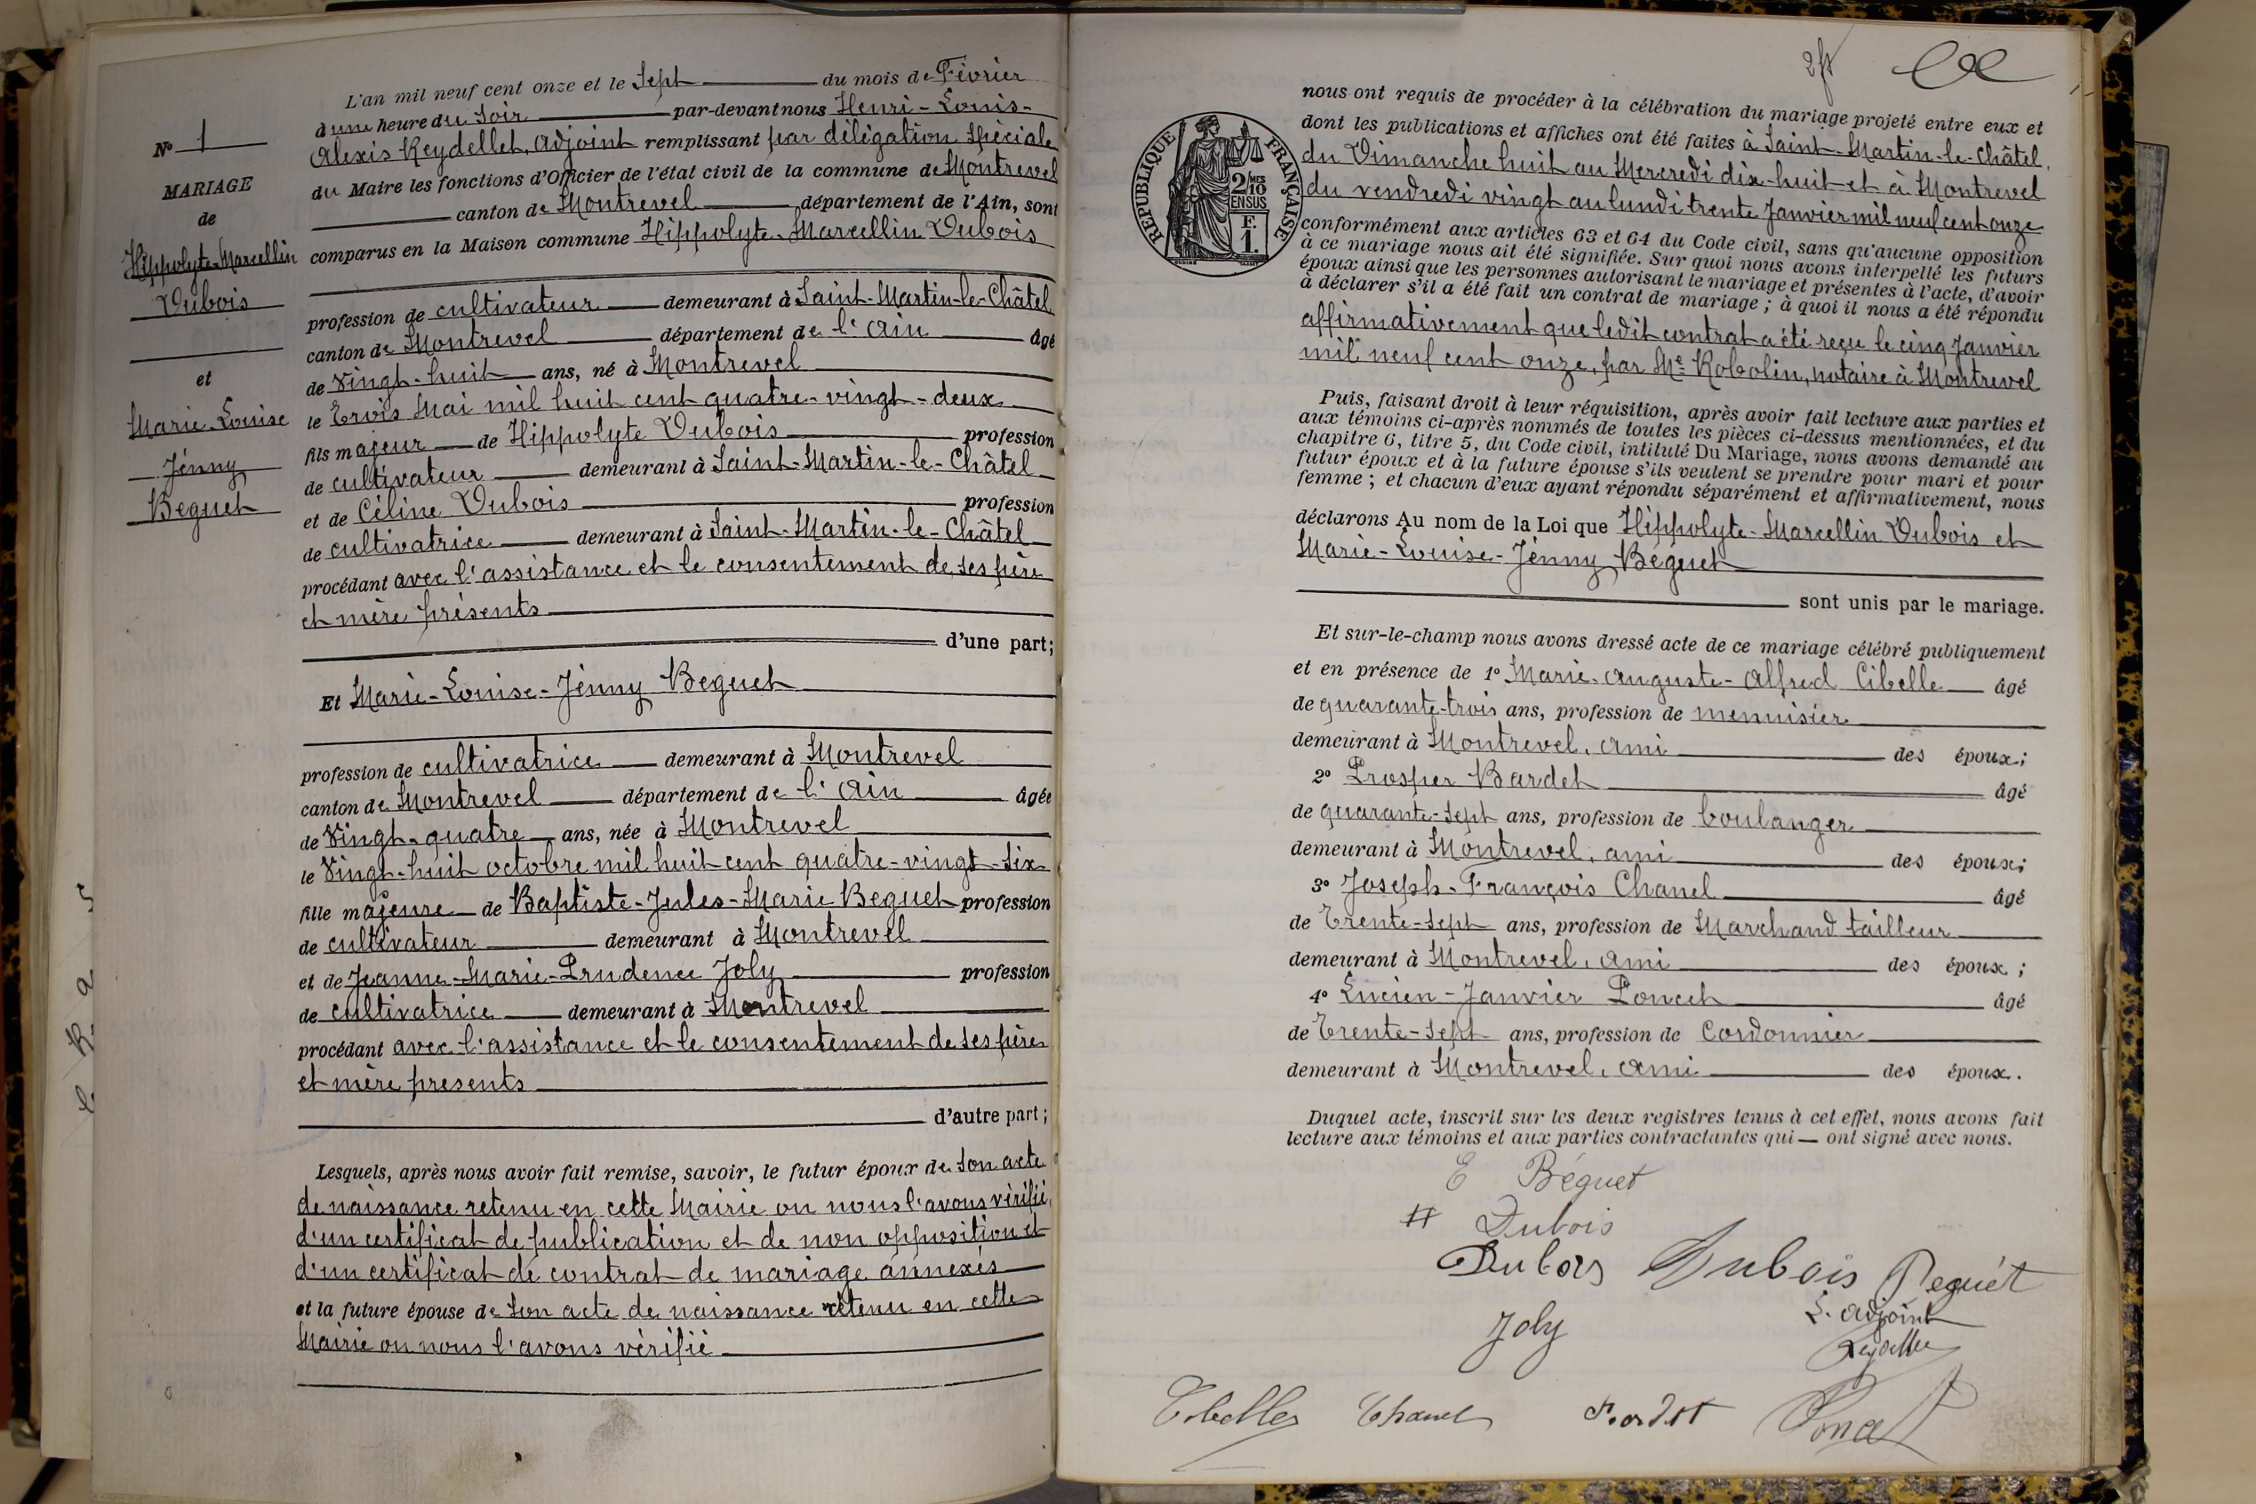 N° 1
MARIAGE
de
Hippolyte-Marcellin
Dubois
et
Marie-Louise
Jénny
Beguet
L'an mil neuf cent onze et le Sept du mois de Février
à une heure du Soir par-devant nous Henri-Louis-
Alexis Reydellet, Adjoint remplissant par délégation spéciale
du Maire les fonctions d'Officier de l'état civil de la commune de Montrevel
canton de Montrevel département de l'Ain, sont
comparus en la Maison commune Hippolyte-Marcellin Dubois
profession de cultivateur demeurant à Saint-Martin-le-Châtel
canton de Montrevel département de l'Ain âgé
de Vingt-huit ans, né à Montrevel
le Trois Mai mil huit cent quatre-vingt-deux
fils majeur de Hippolyte Dubois profession
de cultivateur demeurant à Saint-Martin-le-Châtel
et de Céline Dubois profession
de cultivatrice demeurant à Saint-Martin-le-Châtel
procédant avec l'assistance et le consentement de ses père
et mère présents
d'une part;
Et Marie-Louise-Jénny Beguet
profession de cultivatrice demeurant à Montrevel
canton de Montrevel département de l'Ain âgée
de Vingt-quatre ans, née à Montrevel
le Vingt-huit octobre mil huit cent quatre-vingt-six
fille majeure de Baptiste-Jules-Marie Beguet profession
de cultivateur demeurant à Montrevel
et de Jeanne-Marie-Prudence Joly profession
de cultivatrice demeurant à Montrevel
procédant avec l'assistance et le consentement de ses père
et mère présents
d'autre part;
Lesquels, après nous avoir fait remise, savoir, le futur époux de Son acte
de naissance retenu en cette Mairie ou nous l'avons vérifié,
d'un certificat de publication et de non opposition et
d'un certificat de contrat de mariage annexés
et la future épouse de Son acte de naissance retenu en cette
Mairie ou nous l'avons vérifié
RÉPUBLIQUE FRANÇAISE
2/10 MES
EN SUS
F.
1.
nous ont requis de procéder à la célébration du mariage projeté entre eux et
dont les publications et affiches ont été faites à Saint-Martin-le-Châtel,
du Dimanche huit au Mercredi dix-huit et à Montrevel
du vendredi vingt au lundi trente Janvier mil neuf cent onze
conformément aux articles 63 et 64 du Code civil, sans qu'aucune opposition
à ce mariage nous ait été signifiée. Sur quoi nous avons interpellé les futurs
époux ainsi que les personnes autorisant le mariage et présentes à l'acte, d'avoir
à déclarer s'il a été fait un contrat de mariage; à quoi il nous a été répondu
affirmativement que ledit contrat a été reçu le cinq Janvier
mil neuf cent onze, par Me Robolin, notaire à Montrevel
Puis, faisant droit à leur réquisition, après avoir fait lecture aux parties et
aux témoins ci-après nommés de toutes les pièces ci-dessus mentionnées, et du
chapitre 6, titre 5, du Code civil, intitulé Du Mariage, nous avons demandé au
futur époux et à la future épouse s'ils veulent se prendre pour mari et pour
femme; et chacun d'eux ayant répondu séparément et affirmativement, nous
déclarons Au nom de la Loi que Hippolyte-Marcellin Dubois et
Marie-Louise-Jénny Béguet
sont unis par le mariage.
Et sur-le-champ nous avons dressé acte de ce mariage célébré publiquement
et en présence de 1° Marie-Auguste-Alfred Cibelle âgé
de quarante-trois ans, profession de menuisier
demeurant à Montrevel, ami des époux;
2° Prosper Bardet âgé
de quarante-sept ans, profession de boulanger
demeurant à Montrevel, ami des époux;
3° Joseph-François Chanel âgé
de Trente-sept ans, profession de Marchand tailleur
demeurant à Montrevel, ami des époux;
4° Lucien-Janvier Poncet âgé
de Trente-sept ans, profession de Cordonnier
demeurant à Montrevel, ami des époux.
Duquel acte, inscrit sur les deux registres tenus à cet effet, nous avons fait
lecture aux témoins et aux parties contractantes qui ont signé avec nous.
E Béguet
H Dubois
Dubois Dubois Beguet
Joly L'adjoint
Reydellet
Cibelle Chanel Bardet Poncet